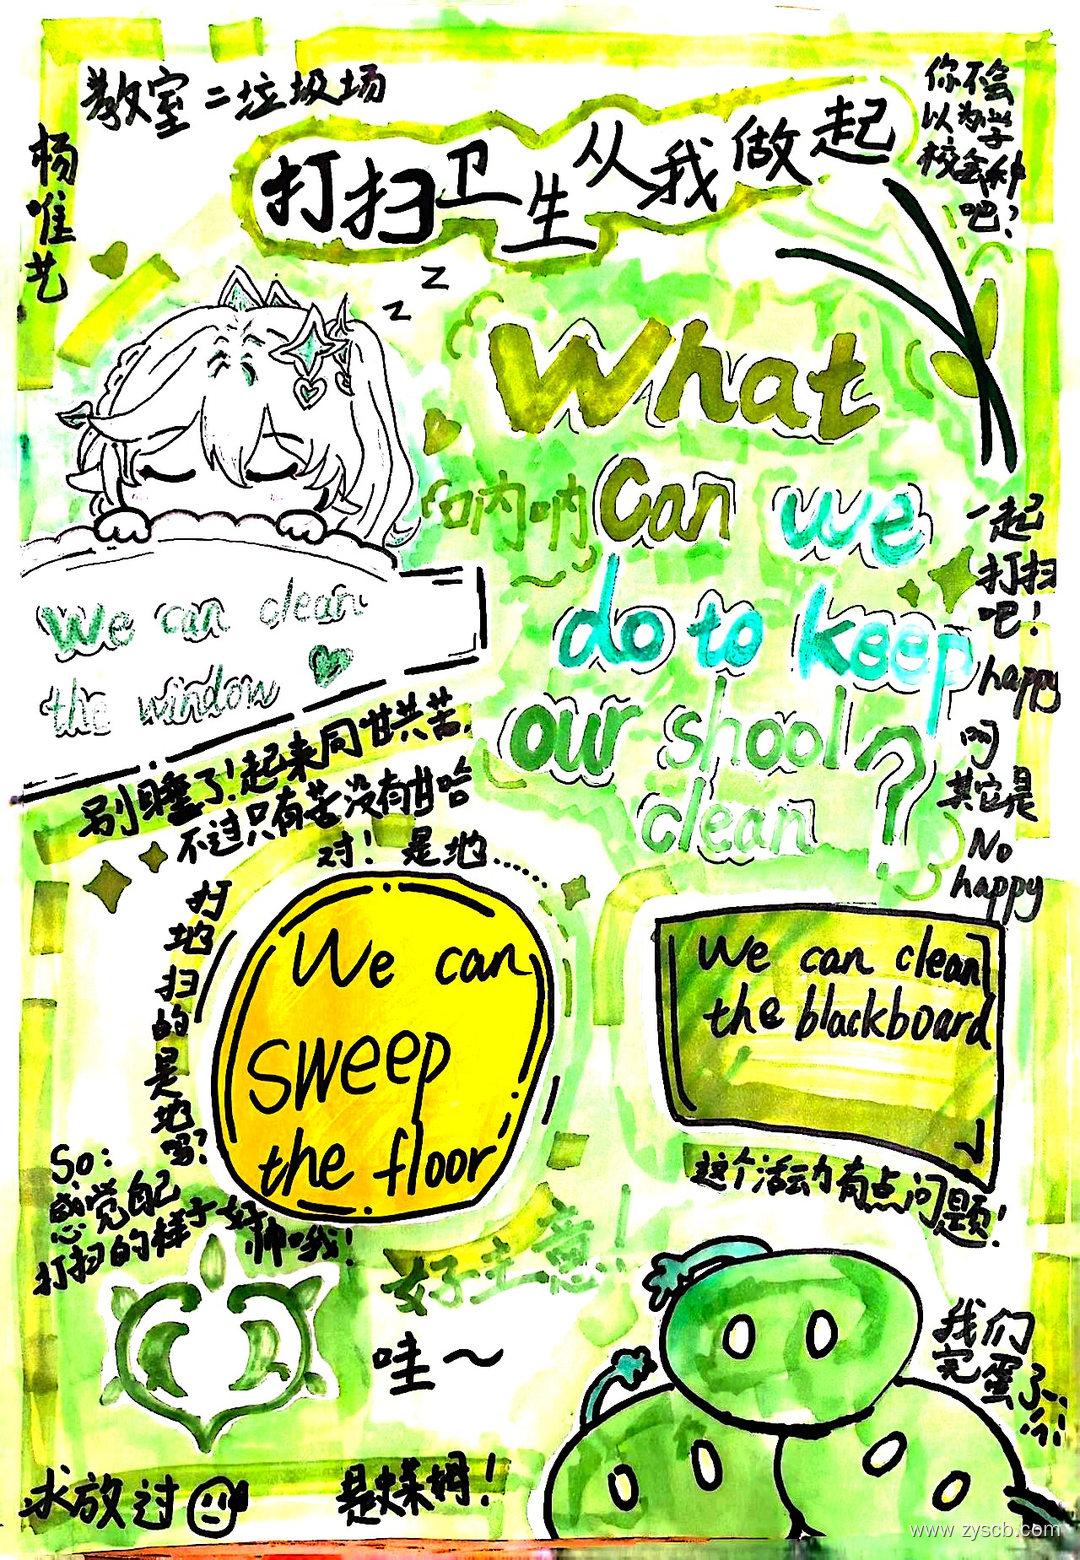 教室二垃圾场
杨唯艺
打扫卫生从我做起
你不会
以为学
校会种
吧?
z
z
What
Can we
do to keep
our shool
clean ?
呐呐
一起
打扫
吧!
happy
吗
其它是
No
happy
We can clean
the window
别睡了!起来同甘共苦.
不过只有苦没有甘哈
对! 是地……
扫地扫的是地吗?
We can
sweep
the floor
We can clean
the blackboard
这个活动有点问题!
So:
感觉自己
打扫的样子好帅哦!
好主意!
哇~
我们
完蛋了…
求放过
是蝶姆!
www.zyscb.com